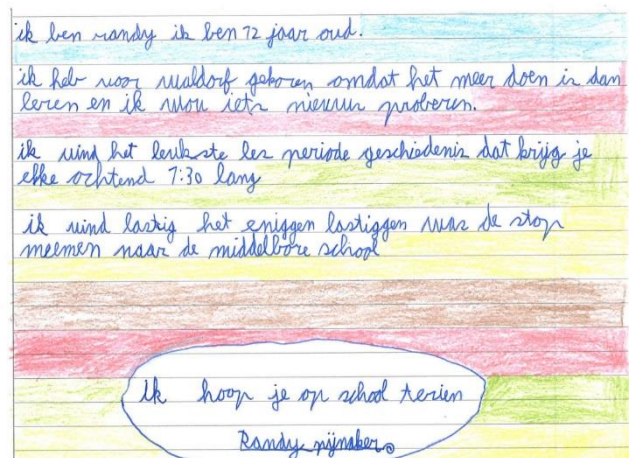 ik ben randy ik ben 12 jaar oud.
ik heb voor waldorf gekozen omdat het meer doen is dan
leren en ik wou iets nieuws proberen.
ik vind het leukste les periode geschiedenis dat krijg je
elke ochtend 1:30 lang
ik vind lastig het eniggen lastiggen was de stop
meemen naar de middelbare school
ik hoop je op school te zien
Randy pijnaker